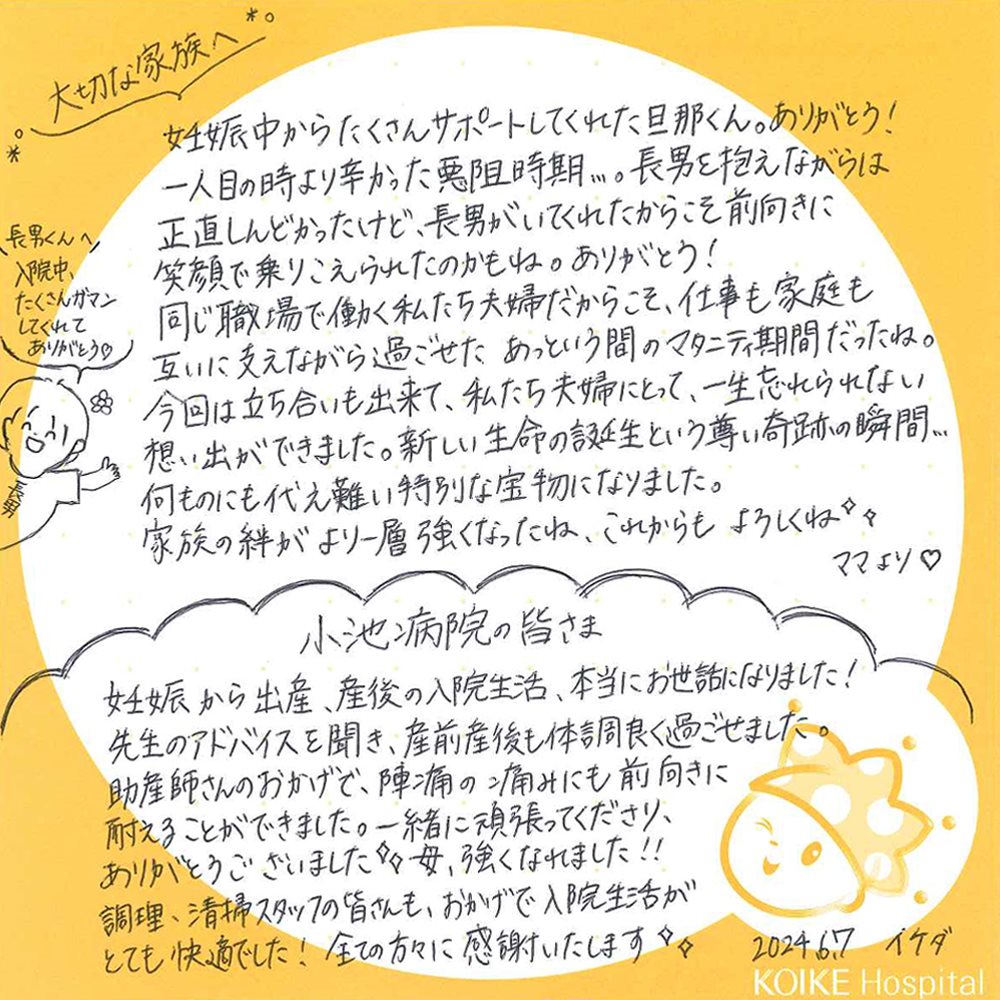 大切な家族へ
妊娠中からたくさんサポートしてくれた旦那くん。ありがとう!
一人目の時より辛かった悪阻時期…。長男を抱えながらは
正直しんどかったけど、長男がいてくれたからこそ前向きに
笑顔で乗りこえられたのかもね。ありがとう!
同じ職場で働く私たち夫婦だからこそ、仕事も家庭も
互いに支えながら過ごせた あっという間のマタニティ期間だったね。
今回は立ち合いも出来て、私たち夫婦にとって、一生忘れられない
想い出ができました。新しい生命の誕生という尊い奇跡の瞬間…
何ものにも代え難い特別な宝物になりました。
家族の絆がより一層強くなったね、これからも よろしくね
ママより♡
長男くんへ
入院中、
たくさんガマン
してくれて
ありがとう♡
長男
小池病院の皆さま
妊娠から出産、産後の入院生活、本当にお世話になりました!
先生のアドバイスを聞き、産前産後も体調良く過ごせました。
助産師さんのおかげで、陣痛の痛みにも前向きに
耐えることができました。一緒に頑張ってくださり、
ありがとうございました 母、強くなれました!!
調理、清掃スタッフの皆さんも、おかげで入院生活が
とても快適でした! 全ての方々に感謝いたします
2024.6.7 イケダ
KOIKE Hospital